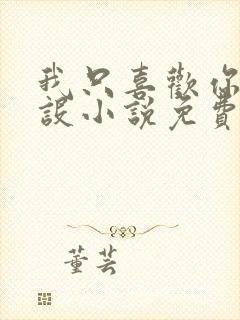 我只喜歡你
設小說免費
董芸